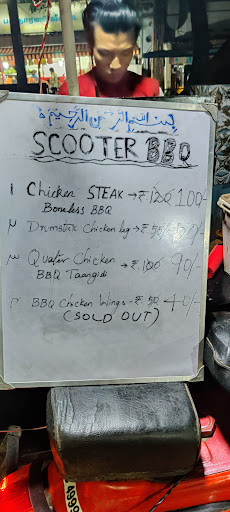 بسم الله الرحمن الرحيم
SCOOTER BBQ
۱ Chicken STEAK → ₹ 120 100/-
Boneless BBQ
۲ Drumstick Chicken leg → ₹
۳ Quater Chicken → ₹ 100 90/-
BBQ Taangdi
۴ BBQ Chicken Wings - ₹ 50 40/-
(SOLD OUT)